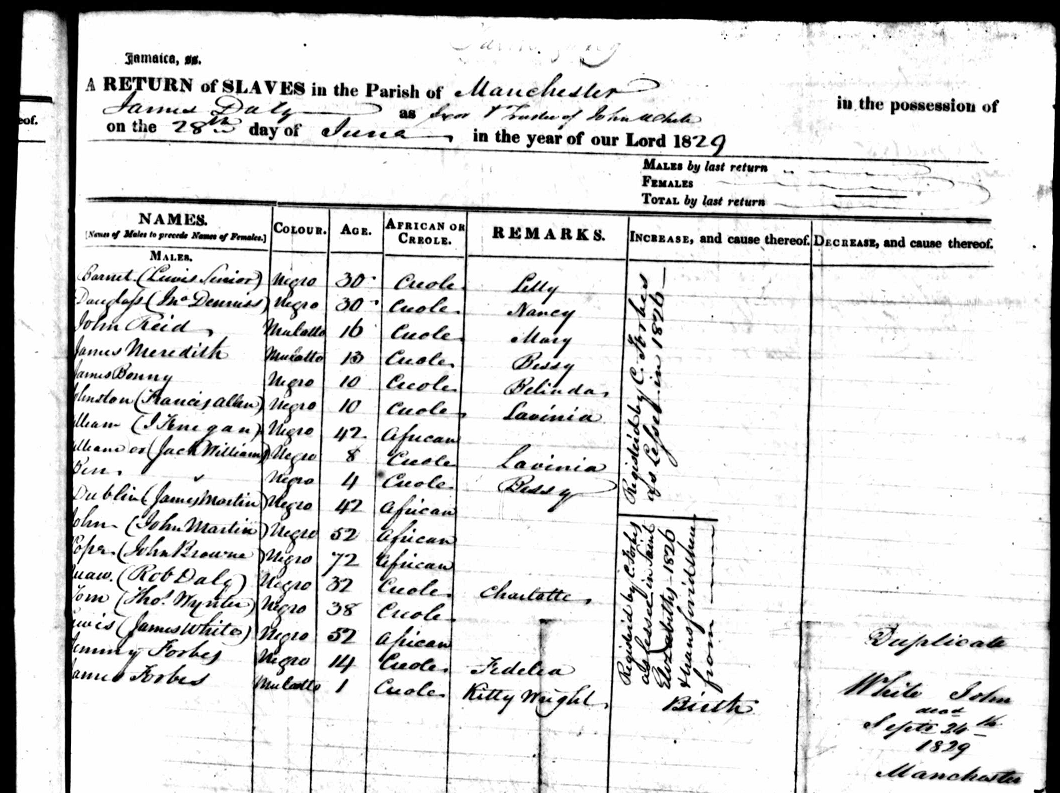 eof.
Jamaica, ss.
A RETURN of SLAVES in the Parish of Manchester in the possession of
James Daly as Exor & Trustee of John White
on the 28th day of June in the year of our Lord 1829
MALES by last return
FEMALES
TOTAL by last return
NAMES. COLOUR. AGE. AFRICAN OR CREOLE. REMARKS. INCREASE, and cause thereof. DECREASE, and cause thereof.
[Names of Males to precede Names of Females.]
MALES.
Barnet (Lewis Senior) Negro 30 Creole Letty
Douglass (Jno Denniss) Negro 30 Creole Nancy
John Reid Mulatto 16 Creole Mary
James Meredith Mulatto 13 Creole Bessy
James Bonny Negro 10 Creole Belinda
ohnston (Francis Allen) Negro 10 Creole Lavinia
illiam (J Finegan) Negro 42 African
illiam or (Jack William) Negro 8 Creole Lavinia
Ben Negro 4 Creole Bessy
Dublin (James Martin) Negro 42 African
John (John Martin) Negro 52 African
(John Browne) Negro 72 African
(Rob Daly) Negro 32 Creole Charlotte
Tom (Tho. Wynter) Negro 38 Creole
ewis (James White) Negro 52 African
emmy Forbes Negro 14 Creole Fidelia
ames Forbes Mulatto 1 Creole Kitty Wright Birth
Registd by C. Forbes
as Lessee in 1826
Registd by C. Forbes
as Lessee in Saint
Elizabeths 1826
& transferrd here
from
Duplicate
White John
dead
Septr 24th
1829
Manchester